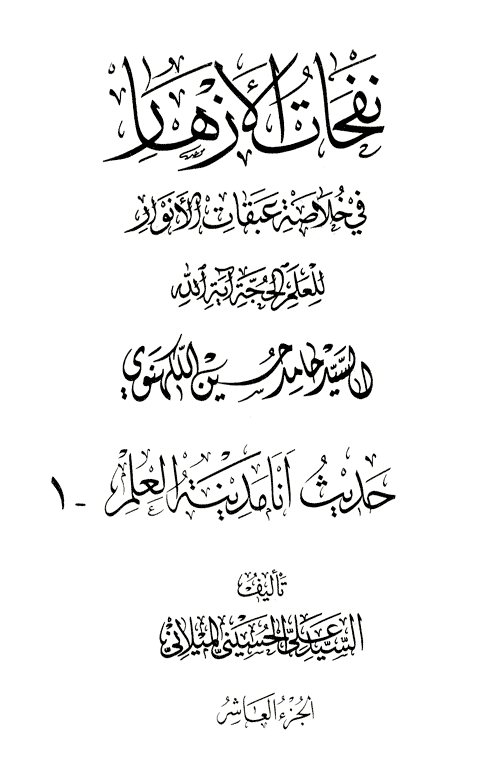 نفحات الأزهار
في خلاصة عبقات الأنوار
للعلم الحجة آية الله
السيد حامد حسين اللكهنوي
حديث أنا مدينة العلم - ١
تأليف
السيد علي الحسيني الميلاني
الجزء العاشر